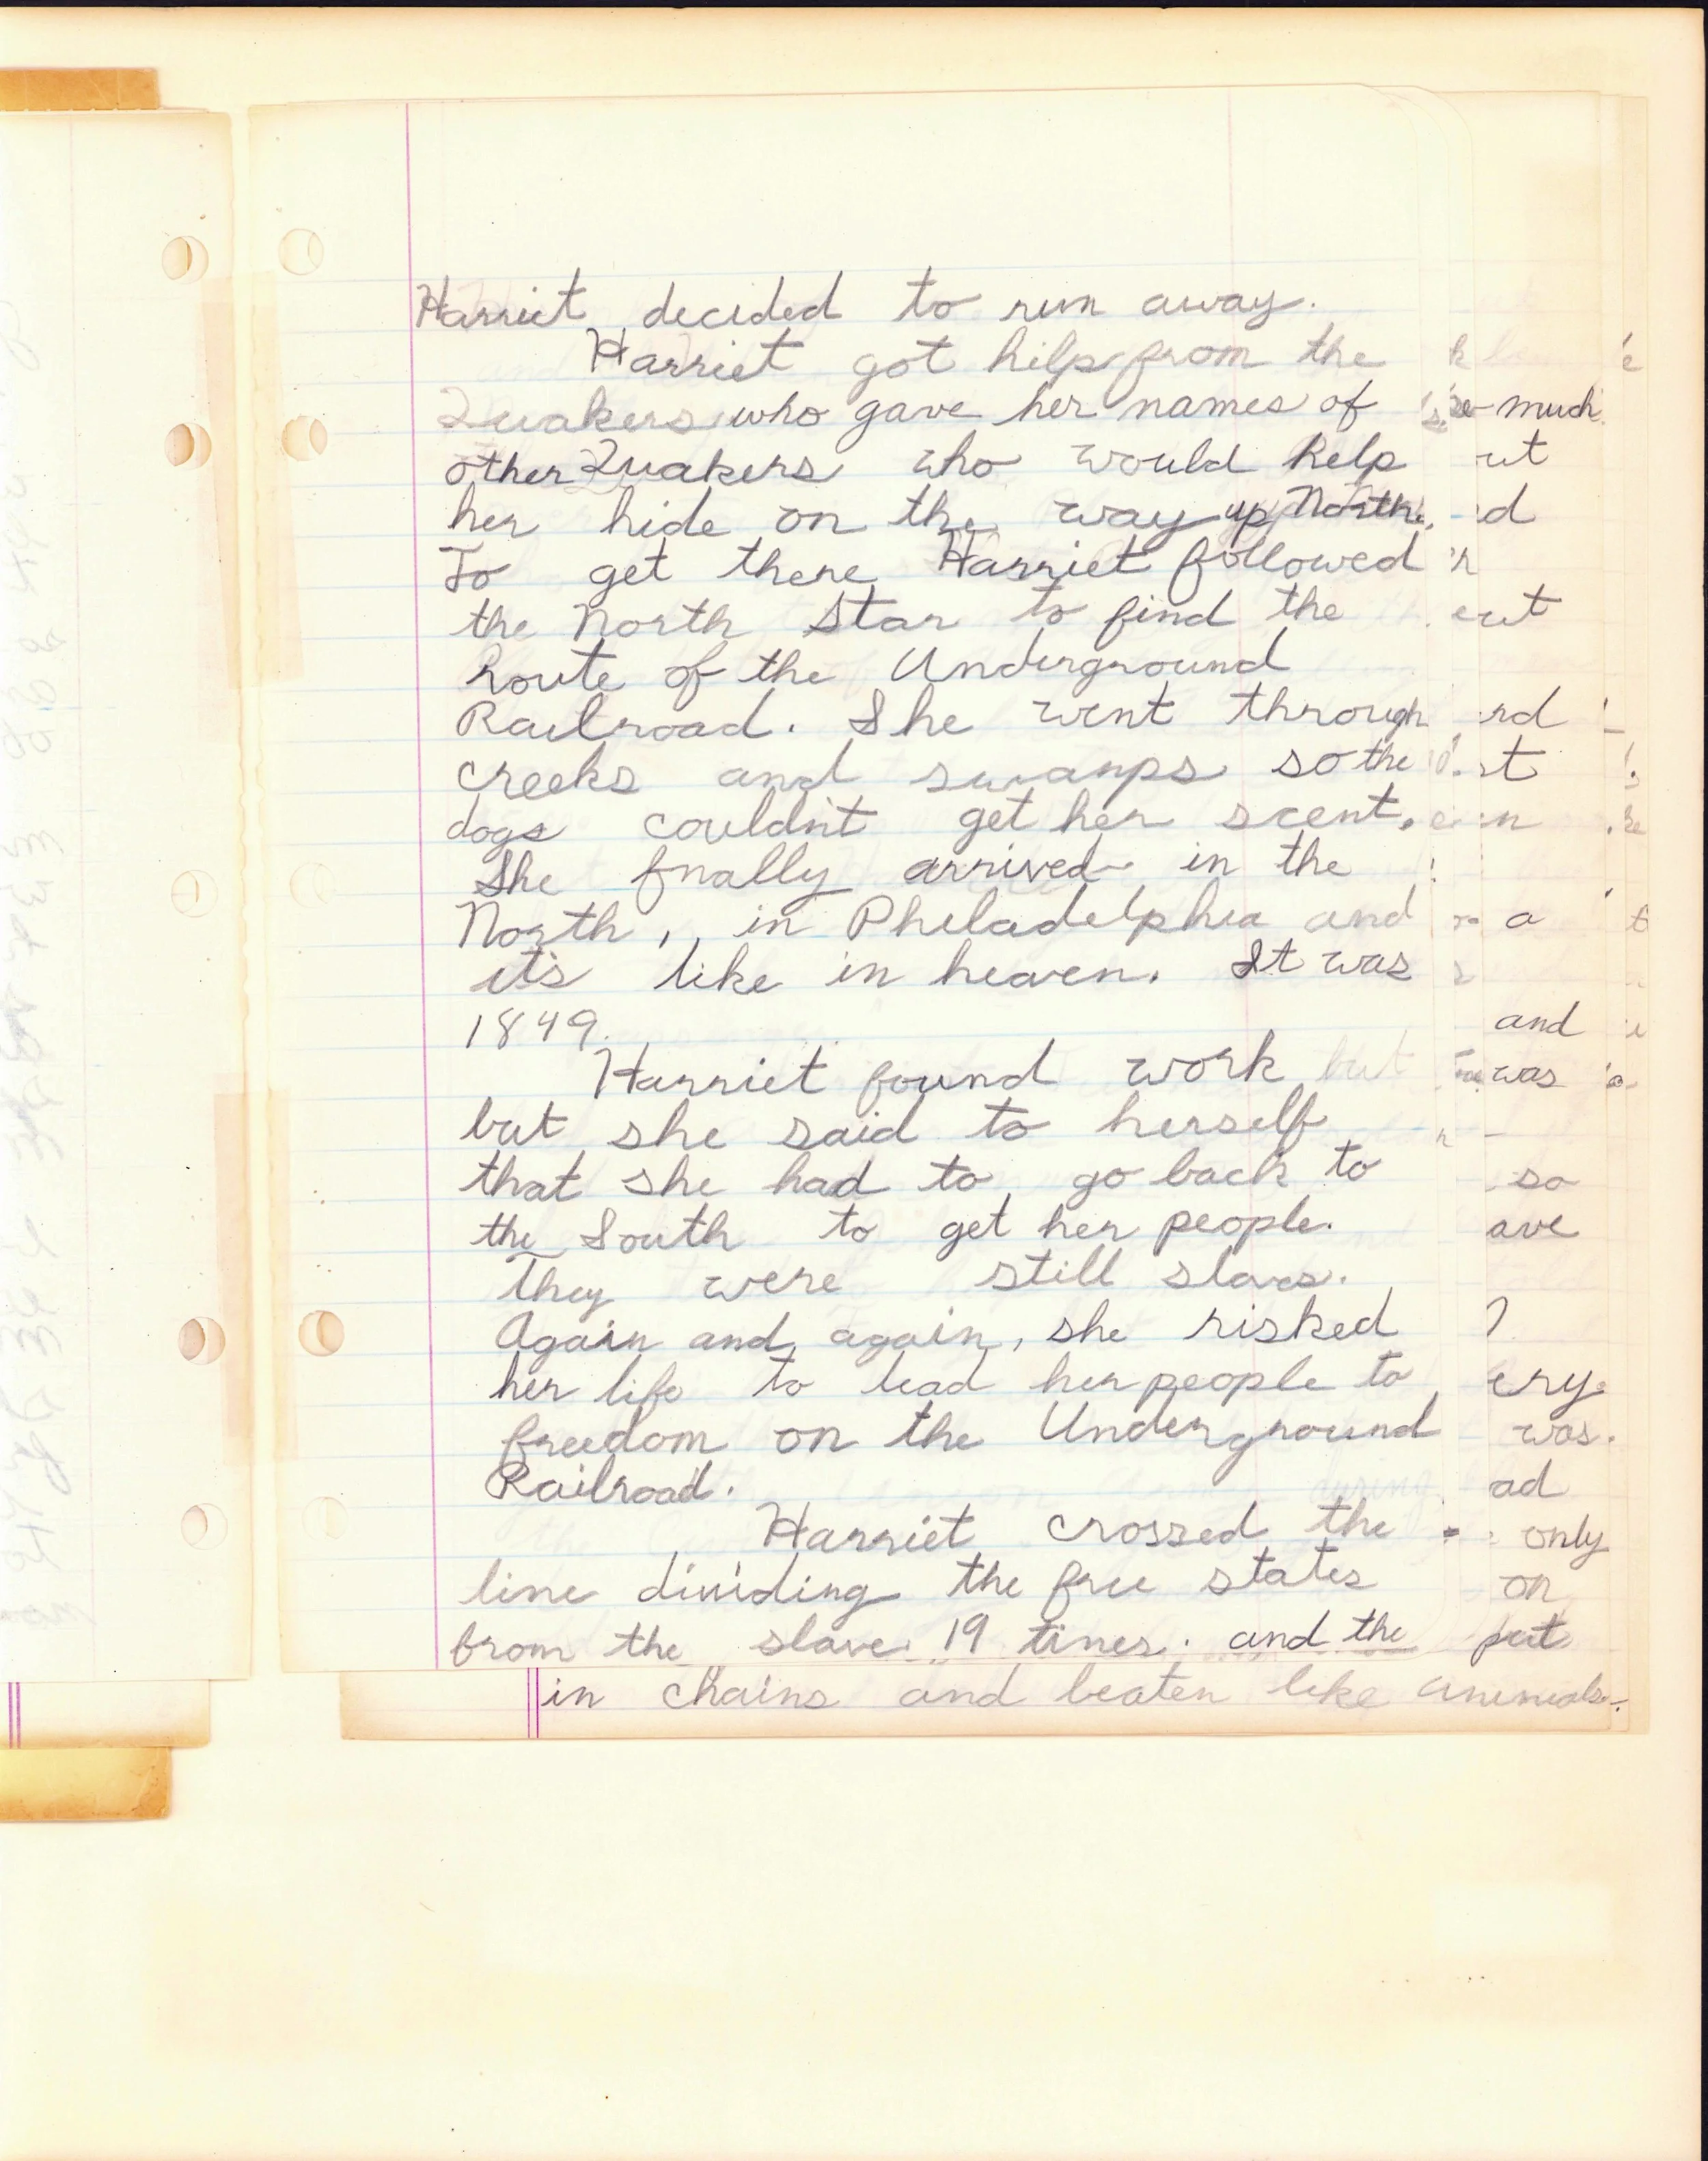 Harriet decided to run away.
Harriet got help from the
Quakers who gave her names of
other Quakers who would help
her hide on the way up North.
To get there Harriet followed
the North Star to find the
route of the Underground
Railroad. She went through
creeks and swamps so the
dogs couldn't get her scent.
She fnally arrived in the
North, in Philadelphia and
it's like in heaven. It was
1849.
Harriet found work but
but she said to herself
that she had to go back to
the South to get her people.
They were still slaves.
Again and again, she risked
her life to lead her people to
freedom on the Underground
Railroad.
Harriet crossed the
line dividing the free states
from the slave 19 times. and the
in chains and beaten like animals.
much
ut
ed
out
rd
st
n
a
and
was
so
ave
ery.
was.
ad
only
on
put